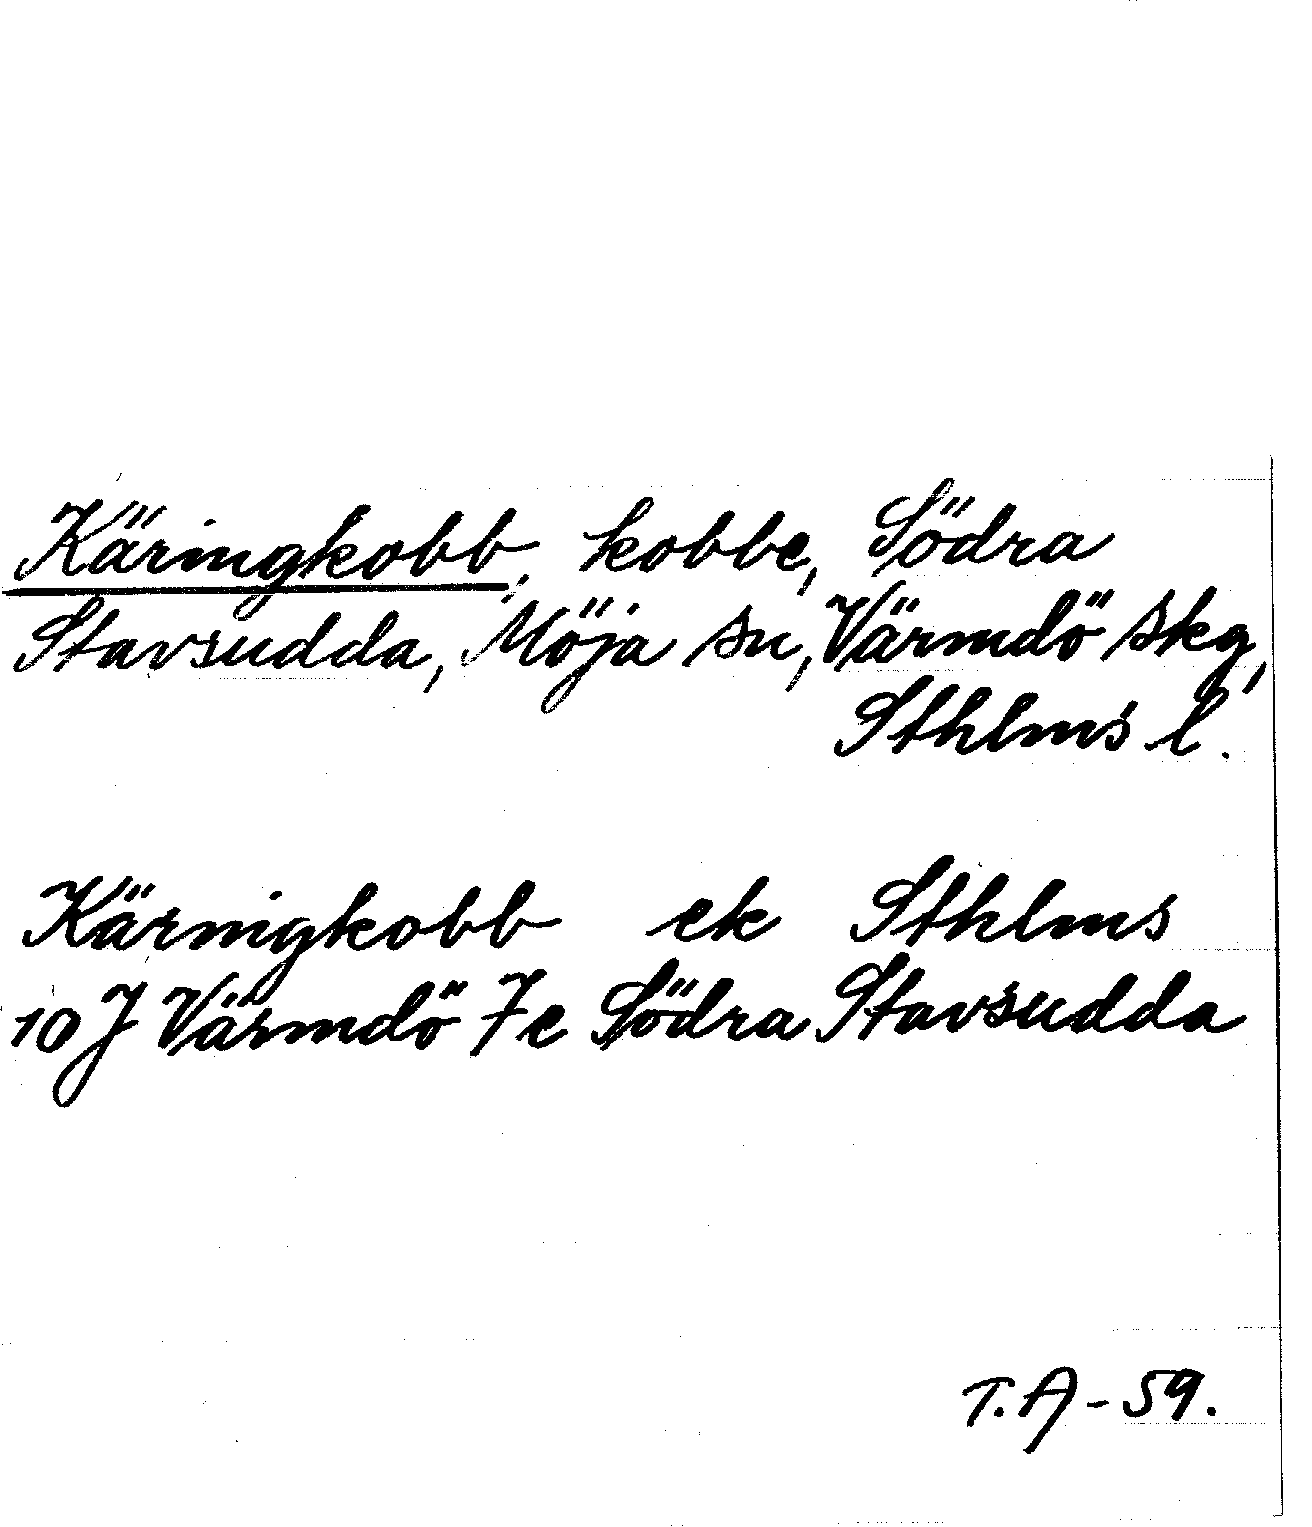 Käringkobb, kobbe, Södra
Stavsudda, Möja sn, Värmdö skg,
Sthlms l.
Käringkobb ek Sthlms
10 J Värmdö 7e Södra Stavsudda
T.A-59.